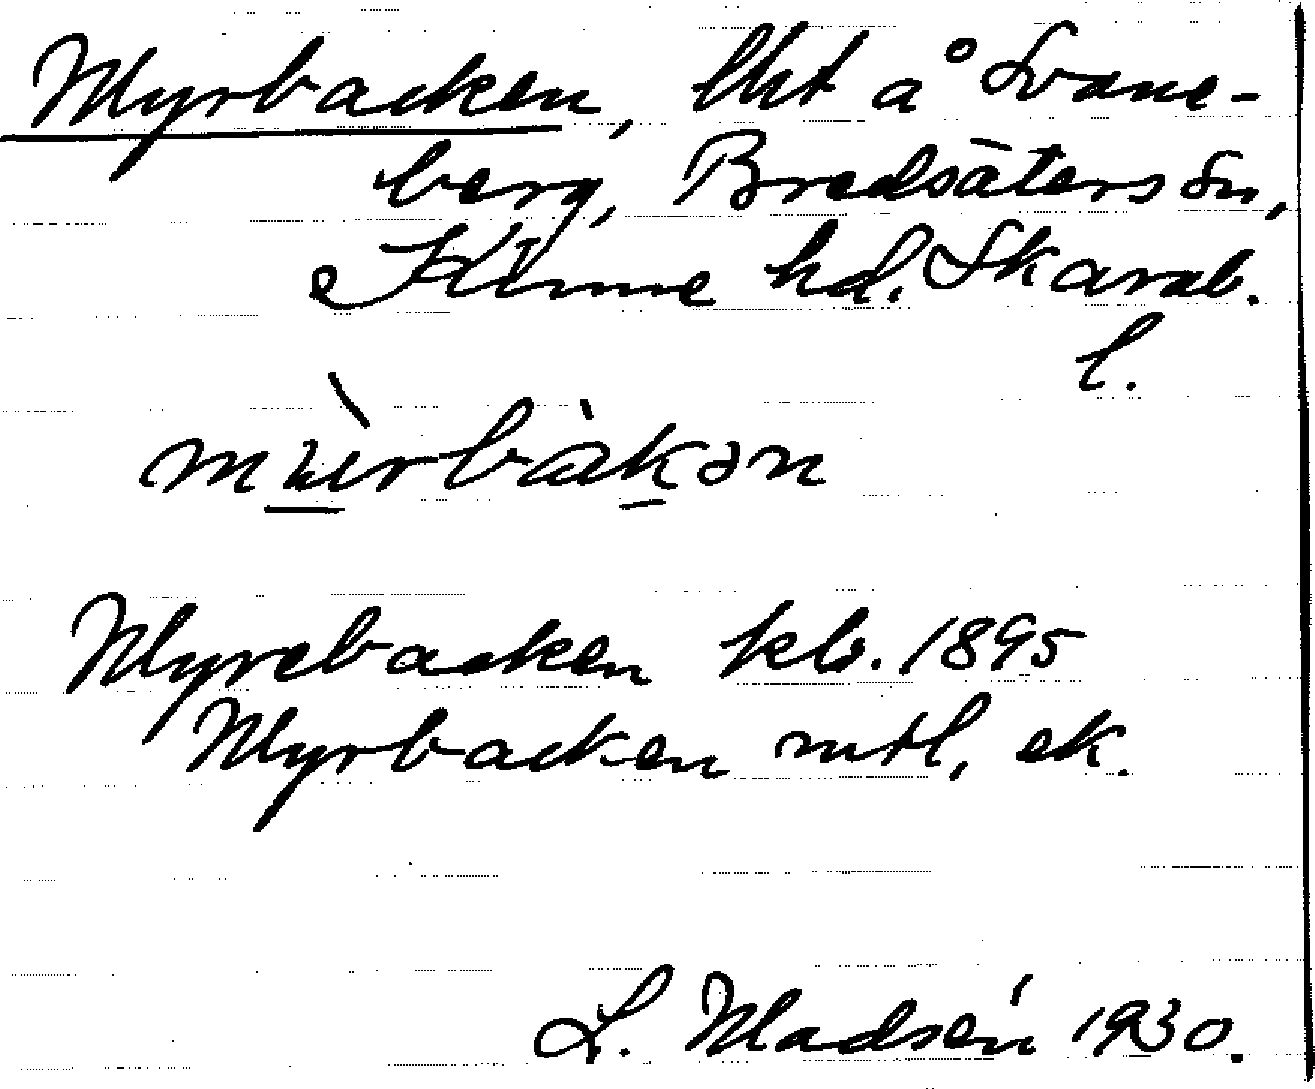 Myrbacken, lht å Svane-
berg, Bredsäters sn,
Kinne hd. Skarab.
l.
Myrebacken kb. 1895
Myrbacken mtl, ek.
L. Madsén 1930.